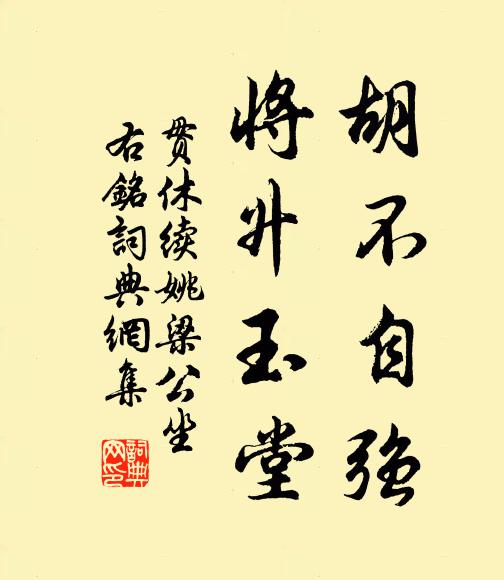 胡不自强
将升玉堂
贯休续姚梁公坐
右銘詞典網集
詞典
网印